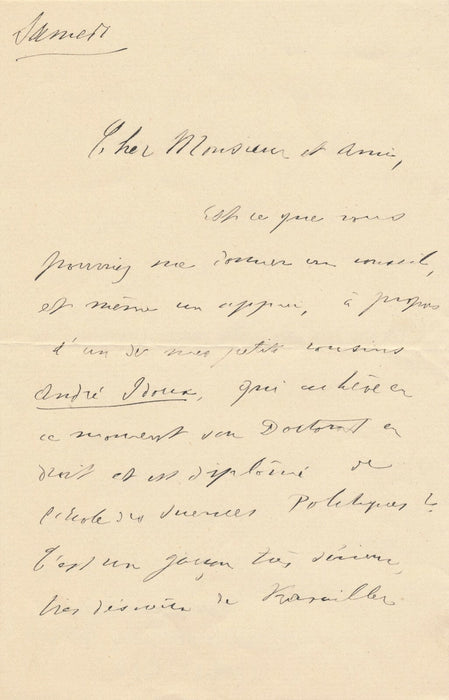 Samedi
Cher Monsieur et ami,
Est ce que vous
pourriez me donner un conseil,
et même un appui, à propos
d'un de mes petits cousins
André Idoux, qui achève en
ce moment son Doctorat en
droit et est diplômé de
l'école des Sciences Politiques ?
C'est un garçon très sérieux,
très désireux de travailler